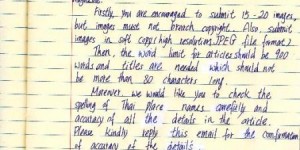 Firstly, you are encouraged to submit 15-20 images,
but images must not breach copyright. Also, submit
images in soft copy (high resolution JPEG file format)
Then, the word limit for articles should be 900
words and titles are needed which should not
be more than 80 characters long.
Moreover, we would like you to check the
spelling of Thai place names carefully and
accuracy of all the details in the article.
Please kindly reply this email for the confirmation
of accuracy of the details.